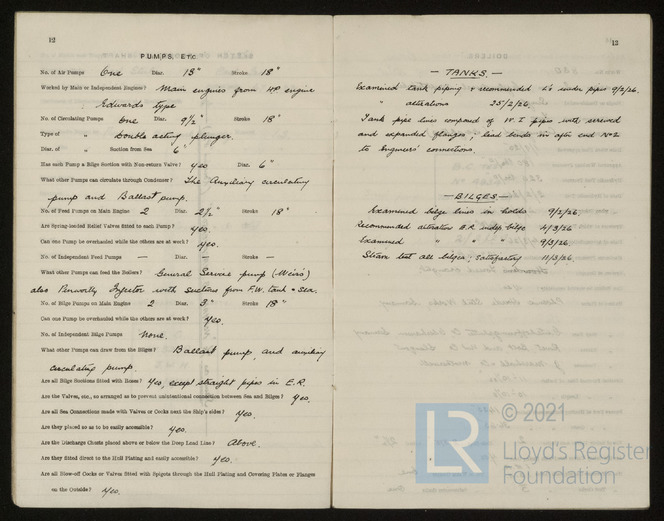 12
PUMPS, ETC
No. of Air Pumps One Diar. 13" Stroke 18"
Worked by Main or Independent Engines? Main engines from HP engine
Edwards type
No. of Circulating Pumps One Diar. 9½" Stroke 18"
Type of " Double acting plunger.
Diar. of " Suction from Sea 6"
Has each Pump a Bilge Suction with Non-return Valve? yes Diar. 6"
What other Pumps can circulate through Condenser? The Auxiliary circulating
pump and Ballast pump.
No. of Feed Pumps on Main Engine 2 Diar. 2½" Stroke 18"
Are Spring-loaded Relief Valves fitted to each Pump? yes.
Can one Pump be overhauled while the others are at work? yes.
No. of Independent Feed Pumps — Diar. — Stroke —
What other Pumps can feed the Boilers? General Service pump (Weirs)
also Penworthy Injector with suctions from F.W. tank & Sea.
No. of Bilge Pumps on Main Engine 2 Diar. 3" Stroke 18"
Can one Pump be overhauled while the others are at work? yes.
No. of Independent Bilge Pumps None.
What other Pumps can draw from the Bilges? Ballast pump, and auxiliary
circulating pump.
Are all Bilge Suctions fitted with Roses? yes, except straight pipes in E.R.
Are the Valves, etc., so arranged as to prevent unintentional connection between Sea and Bilges? yes.
Are all Sea Connections made with Valves or Cocks next the Ship's sides? yes.
Are they placed so as to be easily accessible? yes.
Are the Discharge Chests placed above or below the Deep Load Line? Above.
Are they fitted direct to the Hull Plating and easily accessible? yes.
Are all Blow-off Cocks or Valves fitted with Spigots through the Hull Plating and Covering Plates or Flanges
on the Outside? yes.
13
— TANKS. —
Examined tank piping & recommended L's under pipes 9/2/26.
" alterations 25/2/26.
Tank pipe lines composed of W.I pipes with screwed
and expanded flanges; lead bends in after end No 2
to Engineers' connections.
— BILGES —
Examined bilge lines in holds 9/2/26.
Recommended alteration E.R. indep bilge 4/3/26
Examined " " " 9/3/26.
Steam test all bilges; satisfactory 11/3/26.
LR
© 2021
Lloyd's Register
Foundation